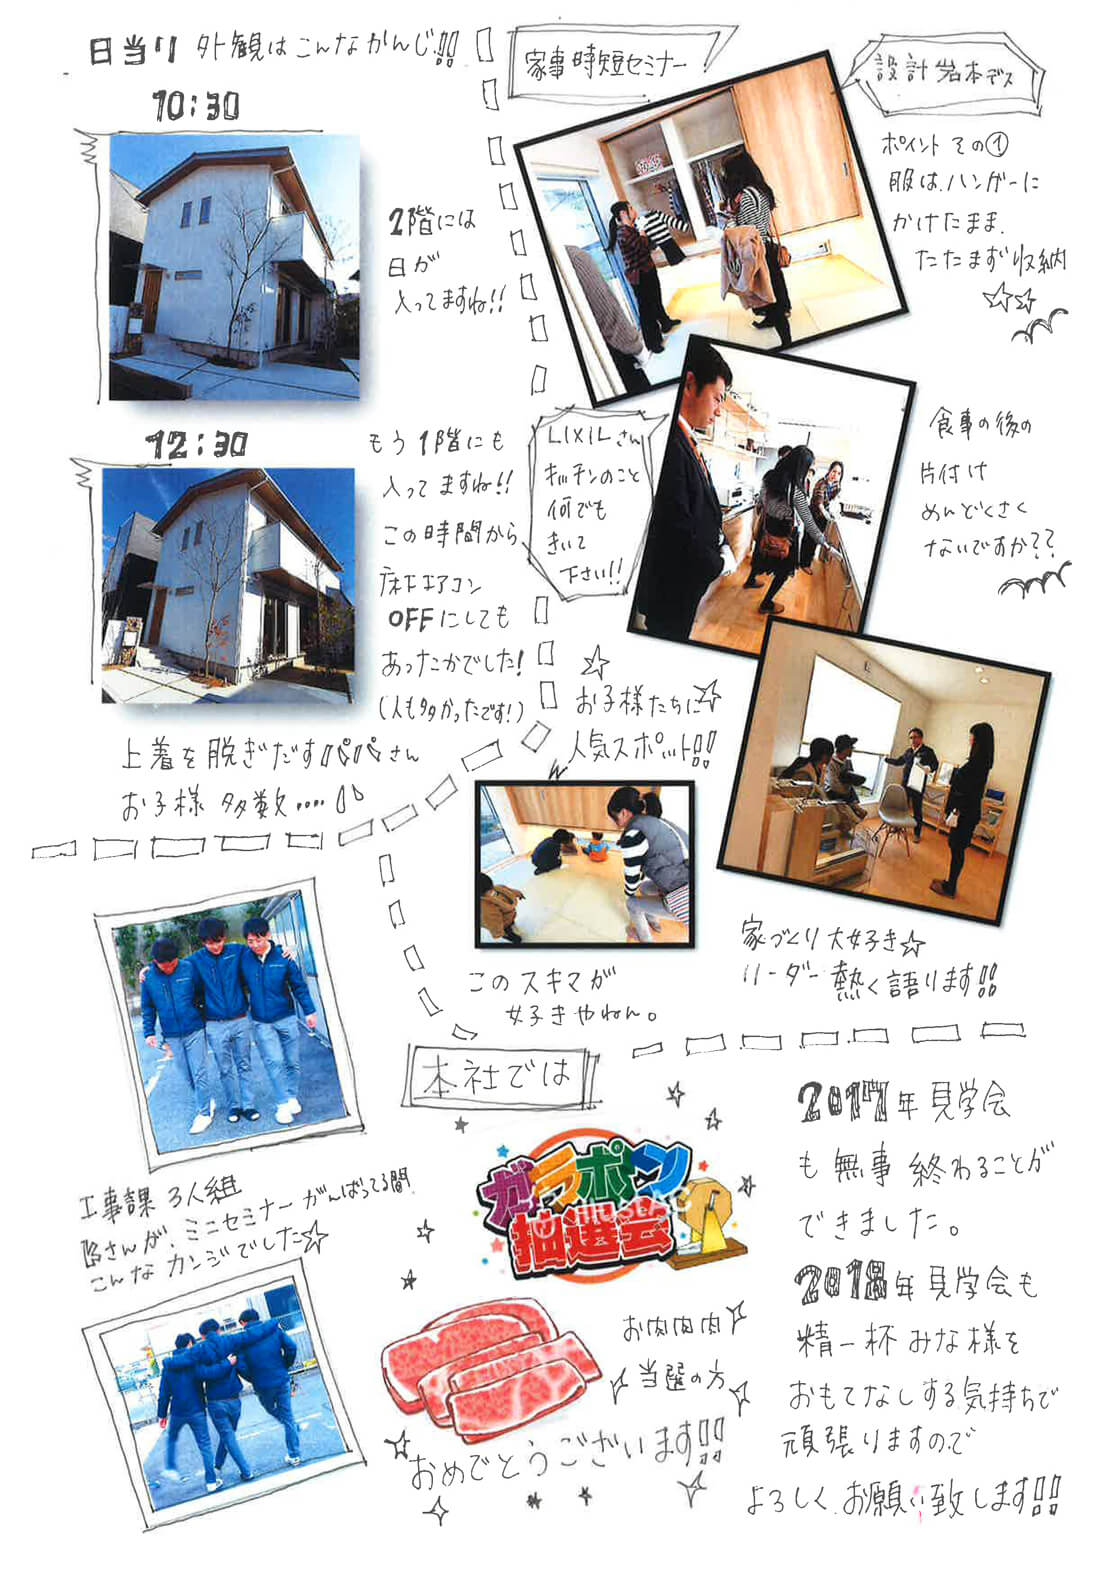 日当り 外観はこんなかんじ!!
10:30
2階には
日が
入ってますね!!
12:30
もう1階にも
入ってますね!!
この時間から
床下エアコン
OFFにしても
あったかでした!
(人も多かったです!)
上着を脱ぎだすパパさん
お子様 多数....
家事時短セミナー
設計 岩本デス
ポイント その①
服は、ハンガーに
かけたまま、
たたまず収納
LIXILさん
キッチンのこと
何でも
きいて
下さい!!
食事の後の
片付け
めんどくさく
ないですか??
お子様たちに
人気スポット!!
このスキマが
好きやねん。
家づくり大好き☆
リーダー熱く語ります!!
工事課 3人組
皆さんが、ミニセミナーがんばってる間、
こんなカンジでした☆
本社では
ガラポン
抽選会
お肉肉肉
当選の方
おめでとうございます!!
2017年見学会
も無事 終わることが
できました。
2018年見学会も
精一杯 みな様を
おもてなしする気持ちで
頑張りますので
よろしく お願い致します!!